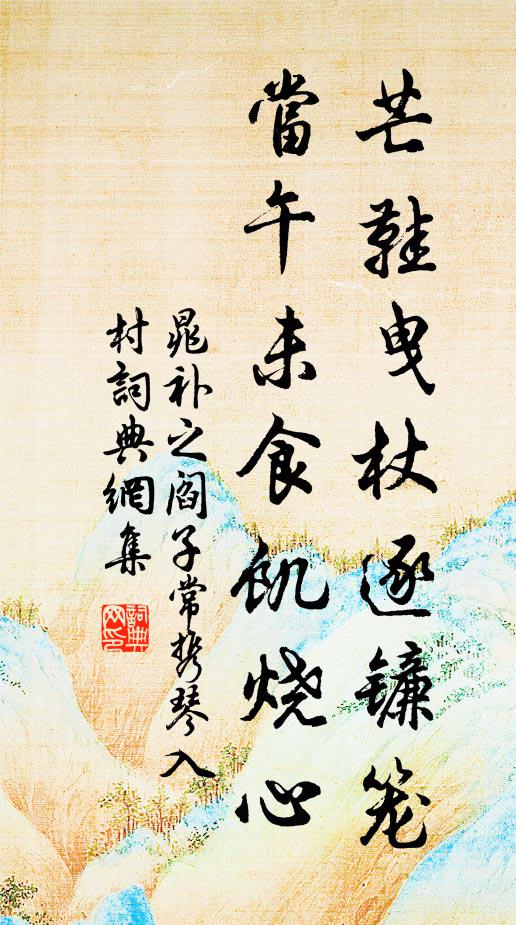 芒鞋曳杖逐镰笼
當午未食飢烧心
晁补之阎子常携琴入
村詞典網集
詞典網印